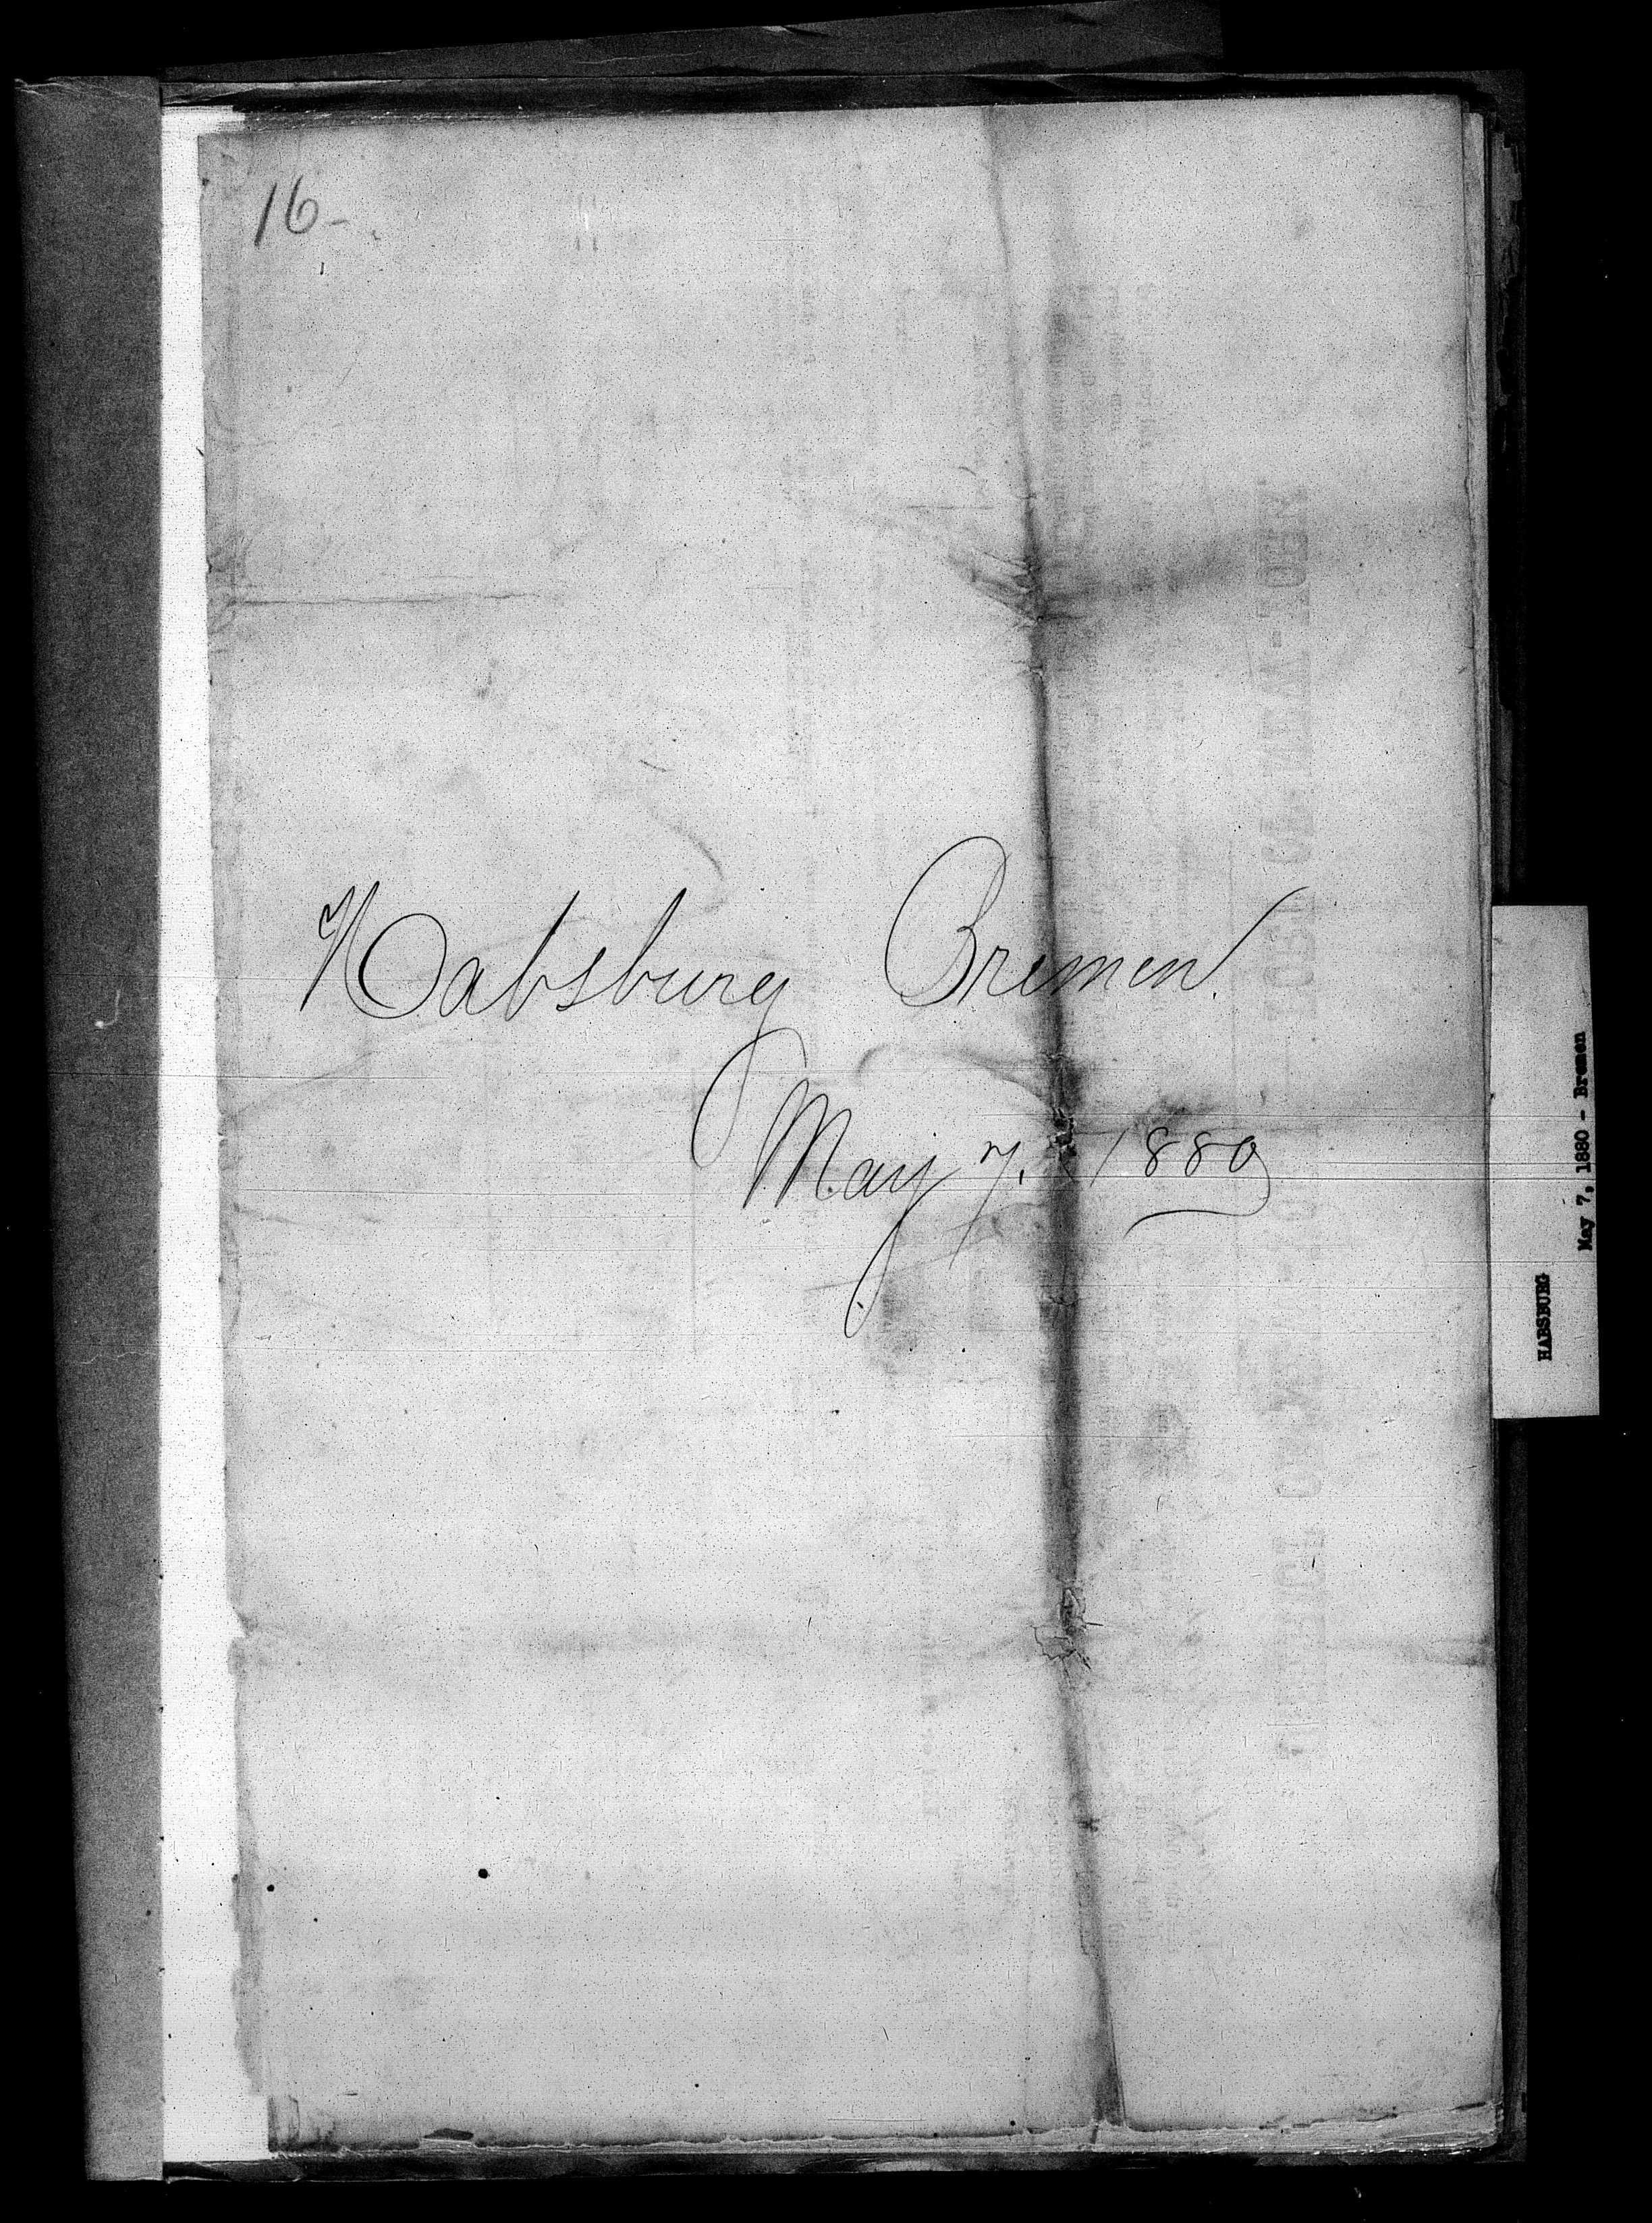 16-
Habsburg Bremen.
May 7, 1880
HABSBURG
May 7, 1880 - Bremen